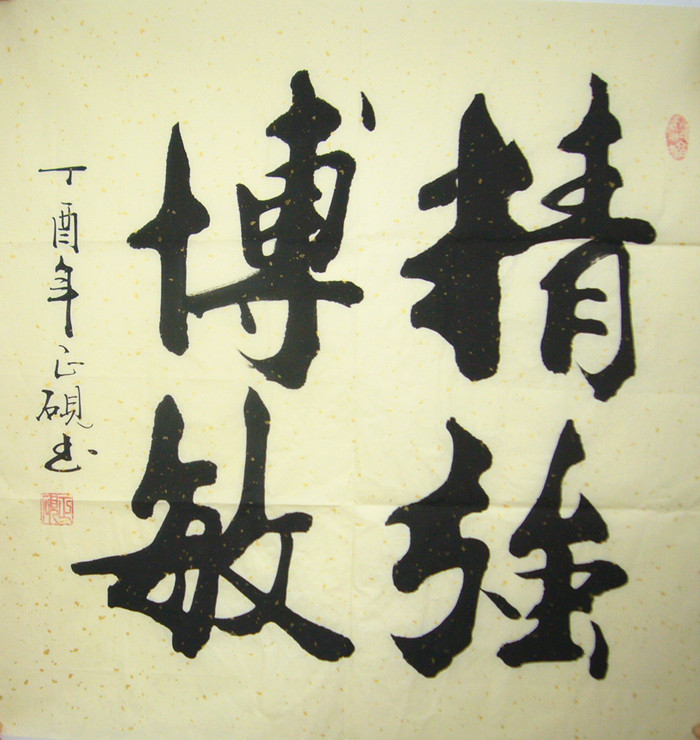 精強
博敏
丁酉年正硯书